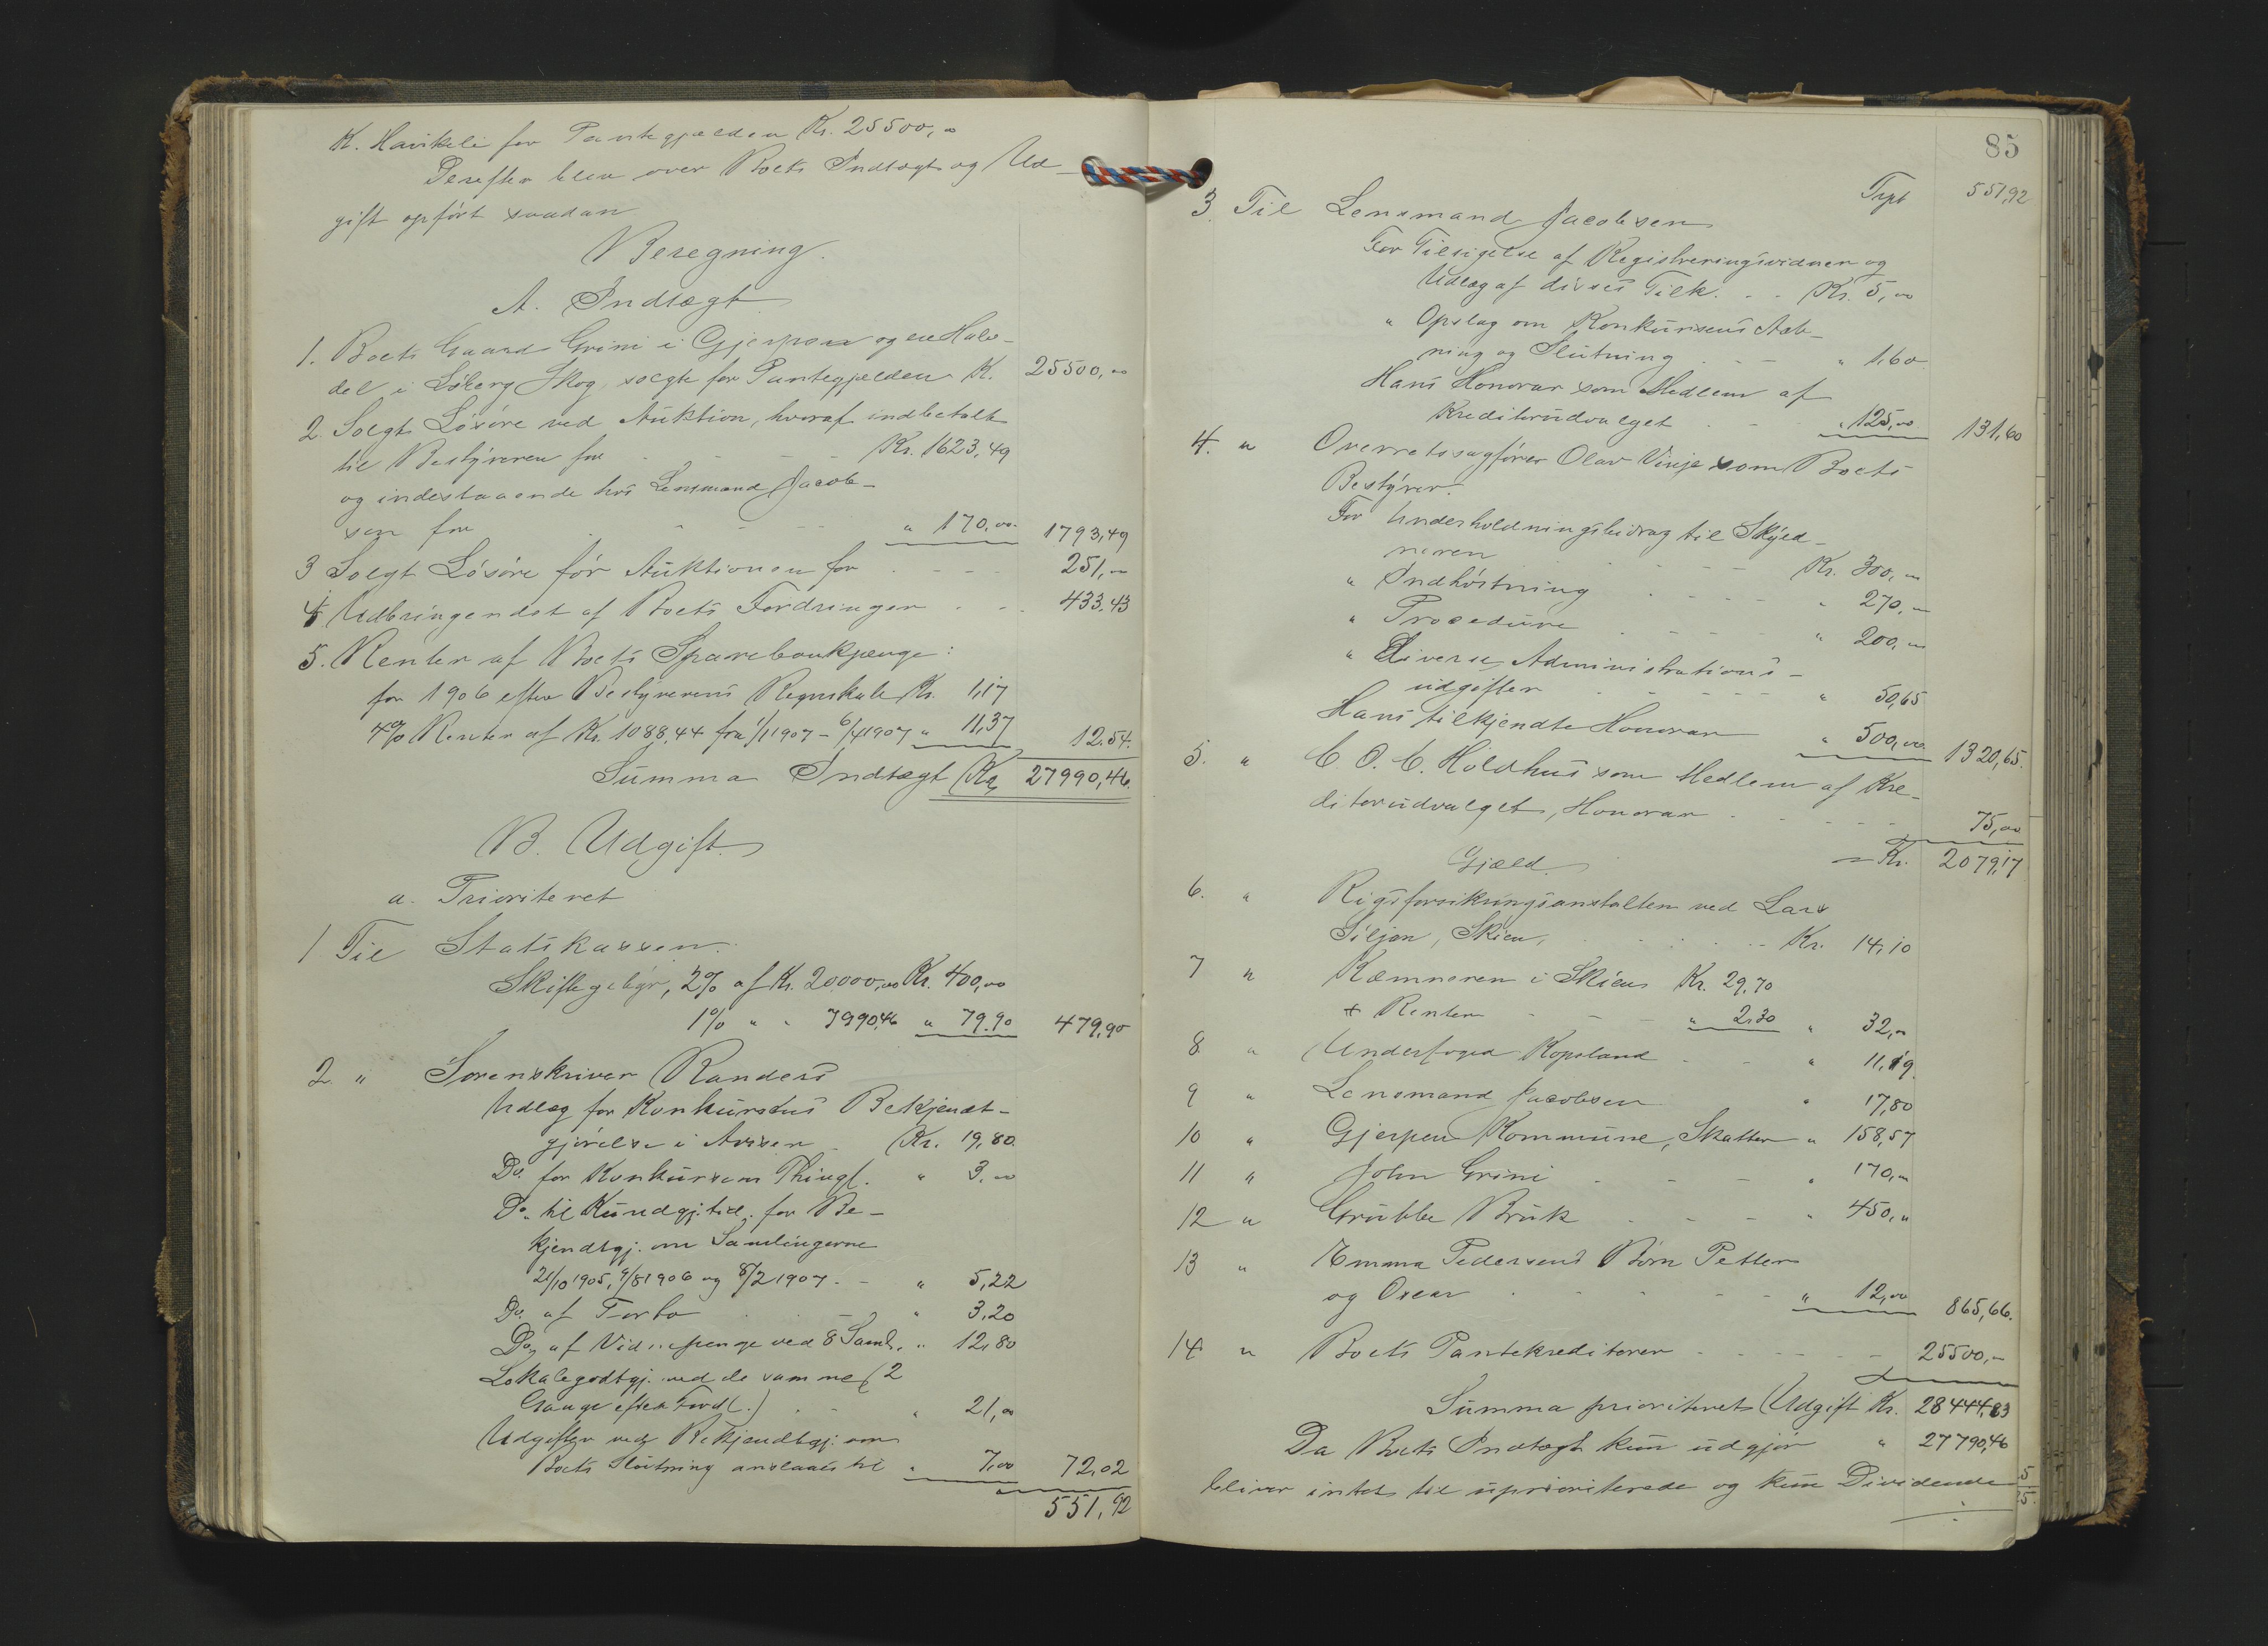 K. Haukeli for Pantegjælden Kr. 25500,00
Derefter blev over Boets Indtægt og Ud-
gift opført saadan
Beregning.
A. Indtægt
1. Boets Gaard Grini i Gjerpen og en Halv-
del i Löberg Skog, solgte for Pantegjælden K. 25500,00
2. Solgt Lösöre ved Auktion, hvoraf indbetalt
til Bestyreren for - - - Kr. 1623,49
og indestaaende hos Lensmand Jacob-
sen for - - - " 170,00 1793,49
3 Solgt Lösöre för Auktionen for - - - 251,00
4. Udbringendet af Boets Fordringer - - - 433,43
5. Renter af Boets Sparebankpenge:
for 1906 efter Bestyrerens Regnskab Kr. 1,17
4% Renter af Kr. 1088,44 fra 1/1 1907 - 6/4 1907 " 11,37 12.54.
Summa Indtægt Kr. 27990,46.
B. Udgift.
a. Prioriteret
1 Til Statskassen:
Skiftegebyr, 2% af Kr. 20000,00 Kr. 400,00
1% " " 7990,46 " 79.90 479,90
2. " Sorenskriver Randers
Udlæg for Konkursens Bekjendt-
gjörelse i Avisen - Kr. 19,80.
Do. for Konkursens Thingl. " 3,00
Do. til Kundgj.tid. for Be-
kjendtgj. om Samlingerne
21/10 1905, 9/8 1906 og 8/2 1907 - - " 5,22
Do. af Porto - " 3,20
Do. af Vidnepenge ved 8 Saml. " 12,80
Lokalegodtgj. ved de samme (2
Gange efter Ford.) - " 21,00
Udgifter ved Bekjendtgj. om
Boets Slutning anslaaes til " 7,00 72,02
551,92
85
Trpt 551,92
3. Til Lensmand Jacobsen
For Tilsigelse af Registreringsvidner og
Udlæg af disses Tilk. - - Kr. 5,00
" Opslag om Konkursens Aab-
ning og Slutning - - - " 1,60
Hans Honorar som Medlem af
Kreditorudvalget - - " 125,00 131,60
4. " Overretssagfører Olav Vinje som Boets
Bestyrer:
For Underholdningsbidrag til Skyld-
neren - - - Kr. 300,00
" Indhöstning - - - " 270,00
" Procedure - - - " 200,00
" Diverse Administrations-
udgifter - - - " 50,65
Hans tilkjendte Honorar " 500,00 1320,65.
5. " C. O. C. Holdhus som Medlem af Kre-
ditorudvalget, Honorar - - - 75,00
= Kr. 2079,17
Gjæld.
6. " Rigsforsikringsanstalten ved Lars
Siljan, Skien, - - - Kr. 14,10
7 " Kæmneren i Skien Kr. 29,70
+ Renter - - - " 2,30 " 32,00
8. " Underfoged Kopsland - - " 11,19.
9 " Lensmand Jacobsen " 17,80
10 " Gjerpen Kommune, Skatter " 158,57
11 " John Grini - - - " 170,00
12 " Grubbe Bruk - - - " 450,00
13 " Emma Pedersens Börn Petter
og Oscar - - - " 12,00 865,66.
14 " Boets Pantekreditorer - - - 25500,-
Summa prioriteret Udgift Kr. 28444,83
Da Boets Indtægt kun udgjør " 27790,46
bliver intet til uprioriterede og kun Dividende